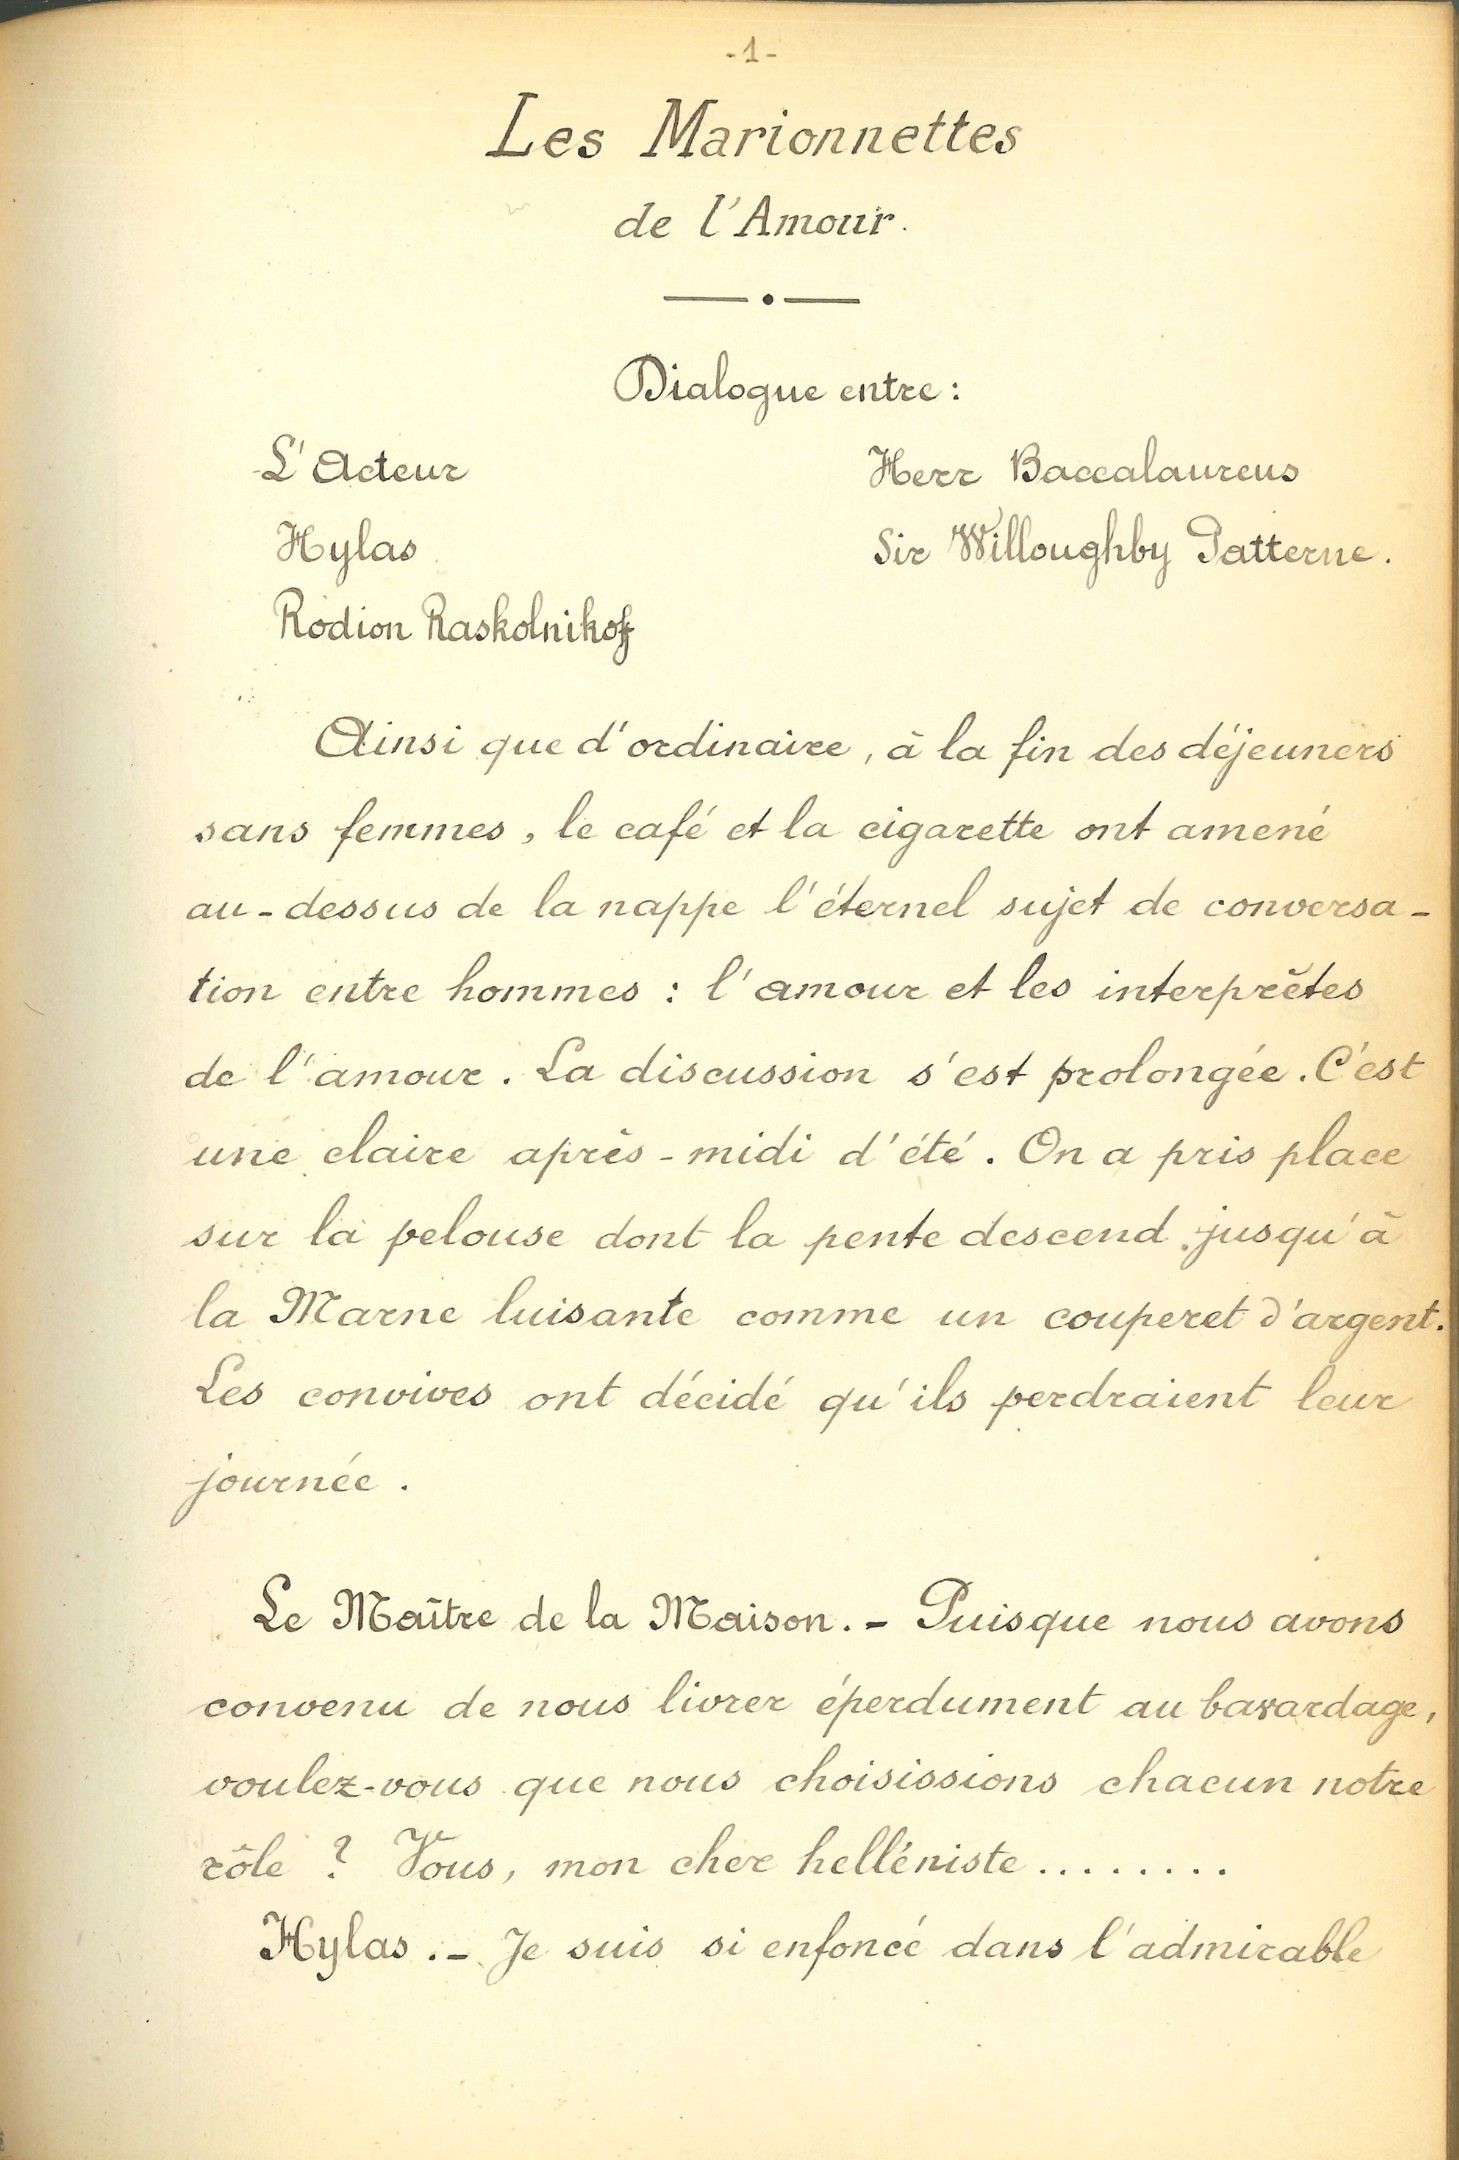 -1-
Les Marionnettes
de l'Amour.
Dialogue entre :
L'Acteur
Herr Baccalaureus
Hylas
Sir Willoughby Patterne.
Rodion Raskolnikoff
Ainsi que d'ordinaire, à la fin des déjeuners
sans femmes, le café et la cigarette ont amené
au-dessus de la nappe l'éternel sujet de conversa-
tion entre hommes : l'amour et les interprètes
de l'amour. La discussion s'est prolongée. C'est
une claire après-midi d'été. On a pris place
sur la pelouse dont la pente descend jusqu'à
la Marne luisante comme un couperet d'argent.
Les convives ont décidé qu'ils perdraient leur
journée.
Le Maître de la Maison. - Puisque nous avons
convenu de nous livrer éperdument au bavardage,
voulez-vous que nous choisissions chacun notre
rôle ? Vous, mon cher helléniste........
Hylas. - Je suis si enfoncé dans l'admirable